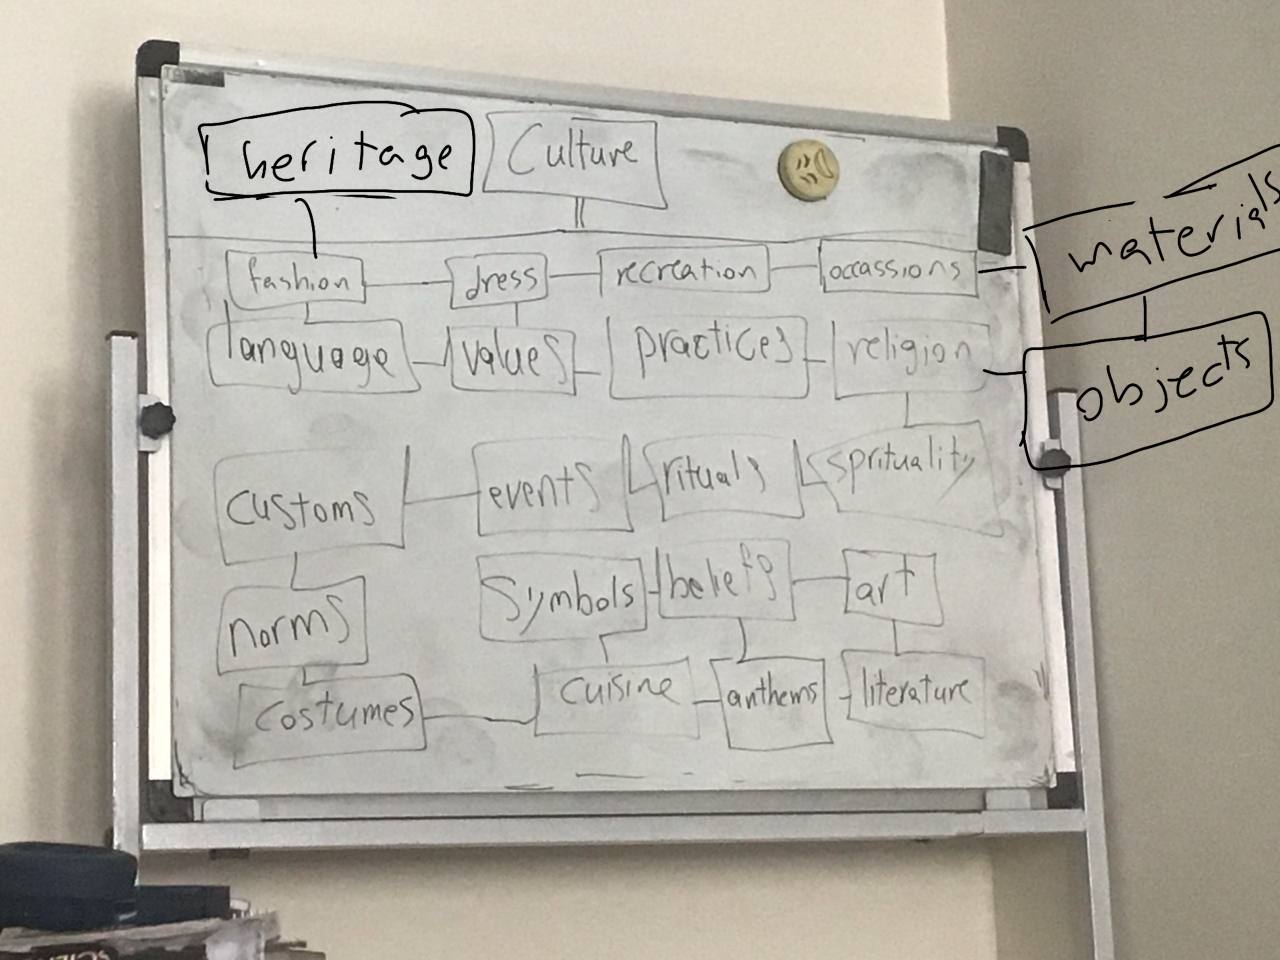 heritage Culture
fashion dress recreation occassions materials
language values practices religion objects
customs events rituals sprituality
norms symbols beliefs art
costumes cuisine anthems literature